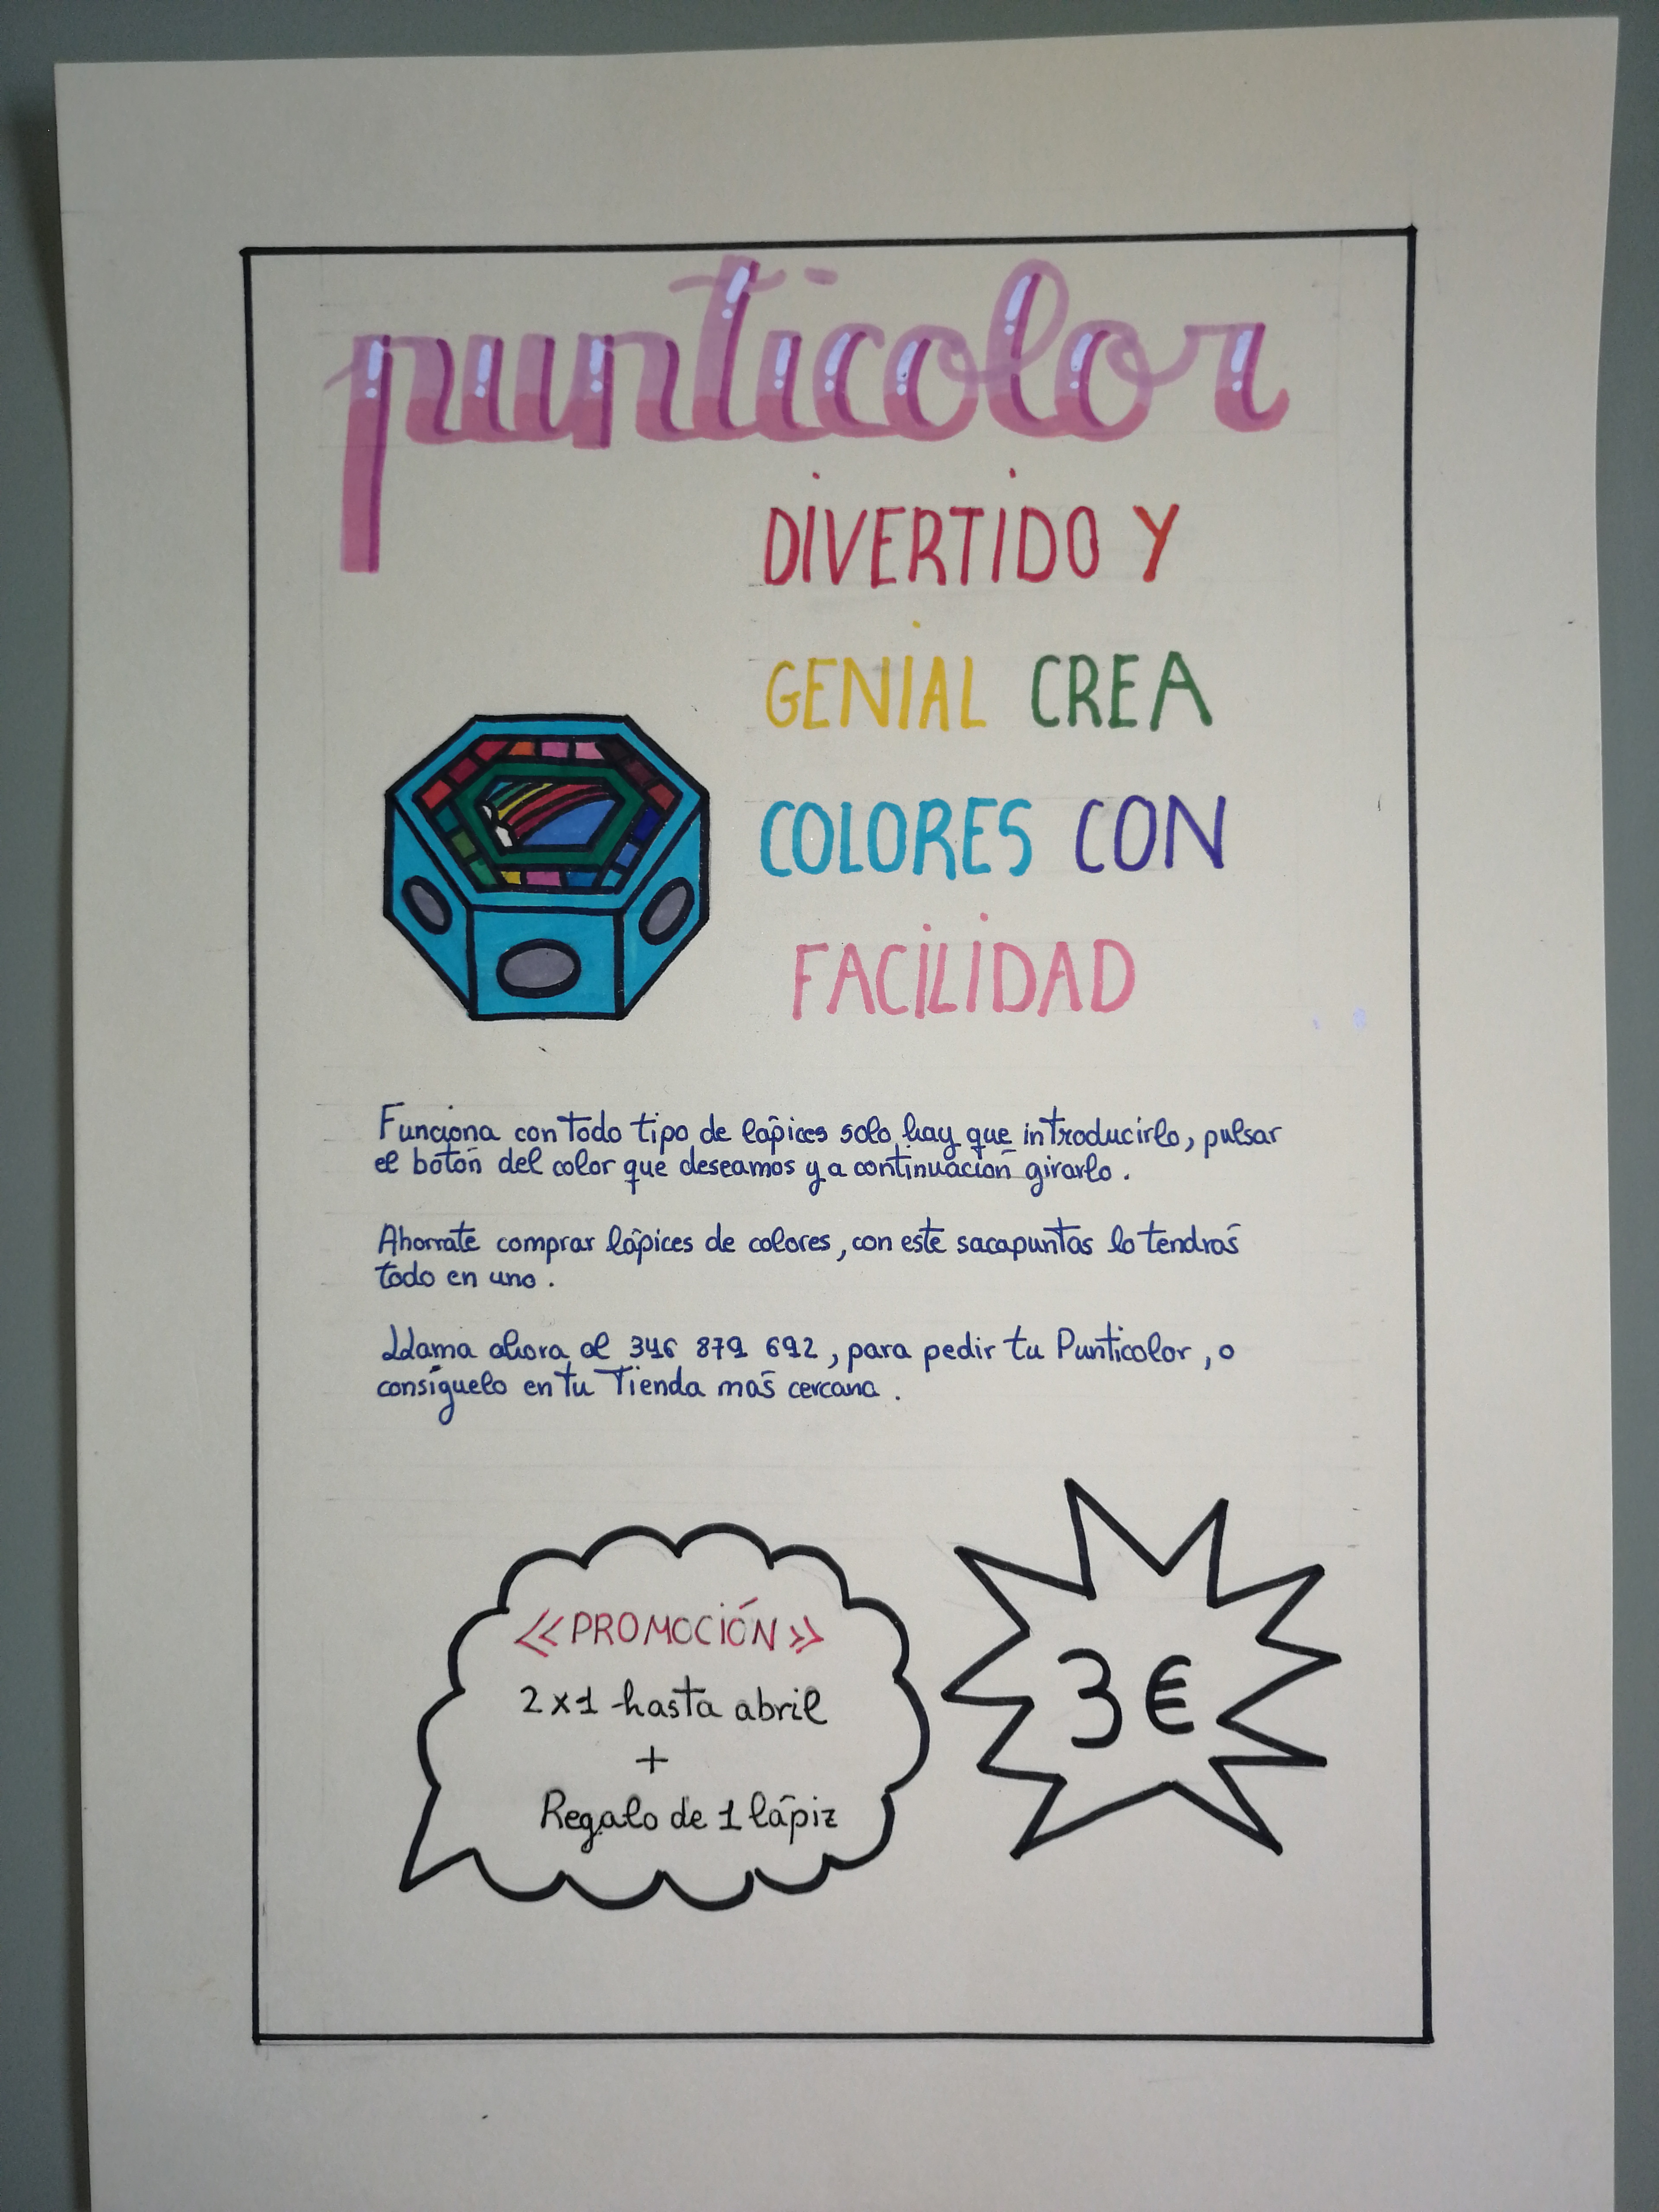 punticolor
DIVERTIDO Y
GENIAL CREA
COLORES CON
FACILIDAD
Funciona con todo tipo de lápices solo hay que introducirlo, pulsar
el botón del color que deseamos y a continuación girarlo.
Ahorrate comprar lápices de colores, con este sacapuntas lo tendrás
todo en uno.
Llama ahora al 346 879 692, para pedir tu Punticolor, o
consíguelo en tu Tienda más cercana.
<<PROMOCIÓN>>
2x1 hasta abril
+
Regalo de 1 lápiz
3€